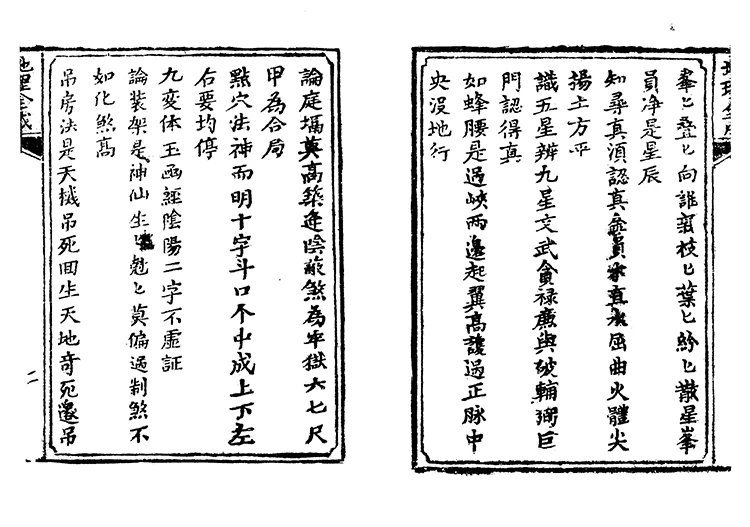 羣〻疊〻向誰親枝〻葉〻紛〻散星峯
員净是星辰
知尋真湏認真員水直木屈曲火體尖
揚土方平
識五星辨九星文武貪禄廉與破輔弼巨
門認得真
如蜂腰是過峽兩邊起翼高護過正脉中
央沒地行
論庭墙莫高築逄陰蔽煞為牢獄六七尺
甲為合局
點穴法神而明十字斗口不中成上下左
右要均停
九変体玉函經陰陽二字不虛証
論装架是神仙生〻尅〻莫偏過制煞不
如化煞高
吊房法是天機吊死囬生天地奇死邊吊
地理全
二